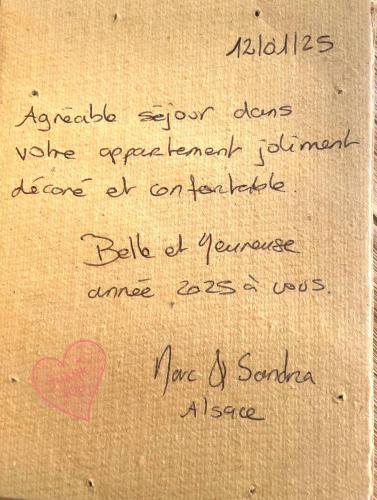 12/01/25
Agréable séjour dans
votre appartement joliment
décoré et confortable.
Belle et Heureuse
année 2025 à vous.
Marc & Sandra
Alsace